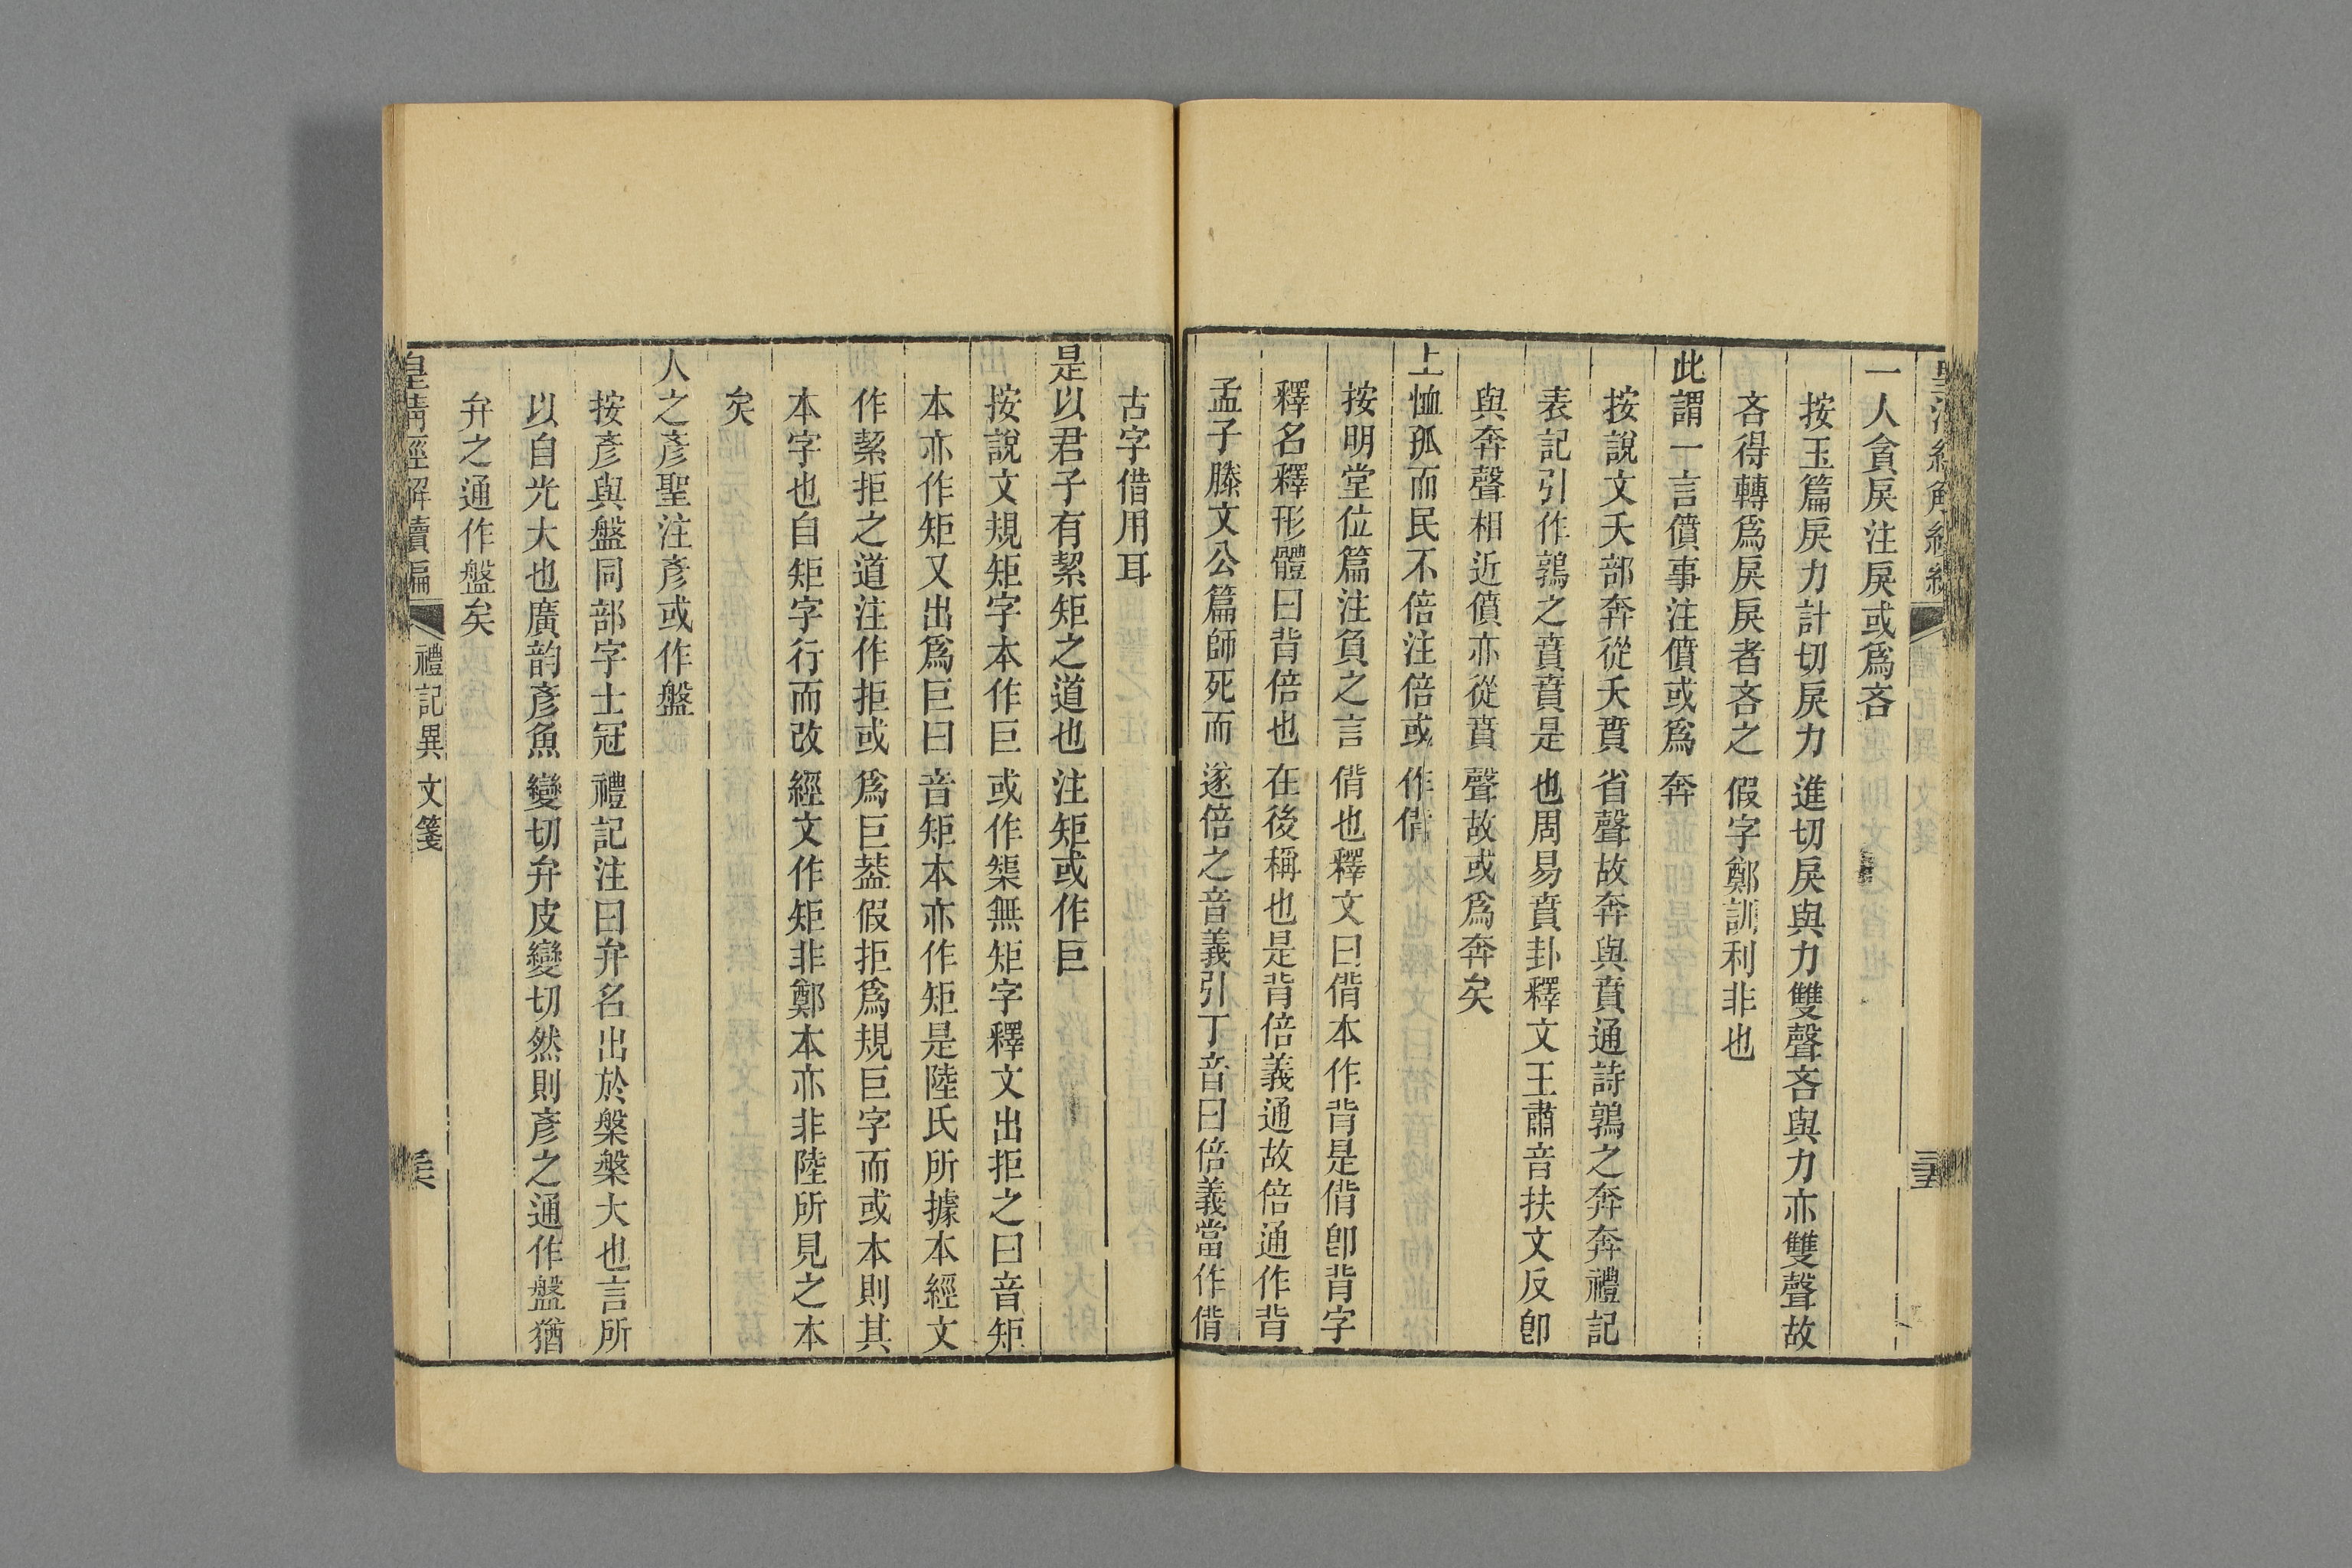 一人貪戾注戾或爲吝
按玉篇戾力計切戾力進切戾與力雙聲吝與力亦雙聲故
吝得轉爲戾戾者吝之假字鄭訓利非也
此謂一言僨事注僨或爲奔
按說文夭部奔從夭賁省聲故奔與賁通詩鶉之奔奔禮記
表記引作鶉之賁賁是也周易賁卦釋文王肅音扶文反卽
與奔聲相近僨亦從賁聲故或爲奔矣
上恤孤而民不倍注倍或作偝
按明堂位篇注負之言偝也釋文曰偝本作背是偝卽背字
釋名釋形體曰背倍也在後稱也是背倍義通故倍通作背
孟子滕文公篇師死而遂倍之音義引丁音曰倍義當作偝
古字借用耳
是以君子有絜矩之道也注矩或作巨
按說文規矩字本作巨或作榘無矩字釋文出拒之曰音矩
本亦作矩又出爲巨曰音矩本亦作矩是陸氏所據本經文
作絜拒之道注作拒或爲巨葢假拒爲規巨字而或本則其
本字也自矩字行而改經文作矩非鄭本亦非陸所見之本
矣
人之彥聖注彥或作盤
按彥與盤同部字士冠禮記注曰弁名出於槃槃大也言所
以自光大也廣韵彥魚變切弁皮變切然則彥之通作盤猶
弁之通作盤矣
皇清經解續編
禮記異文箋